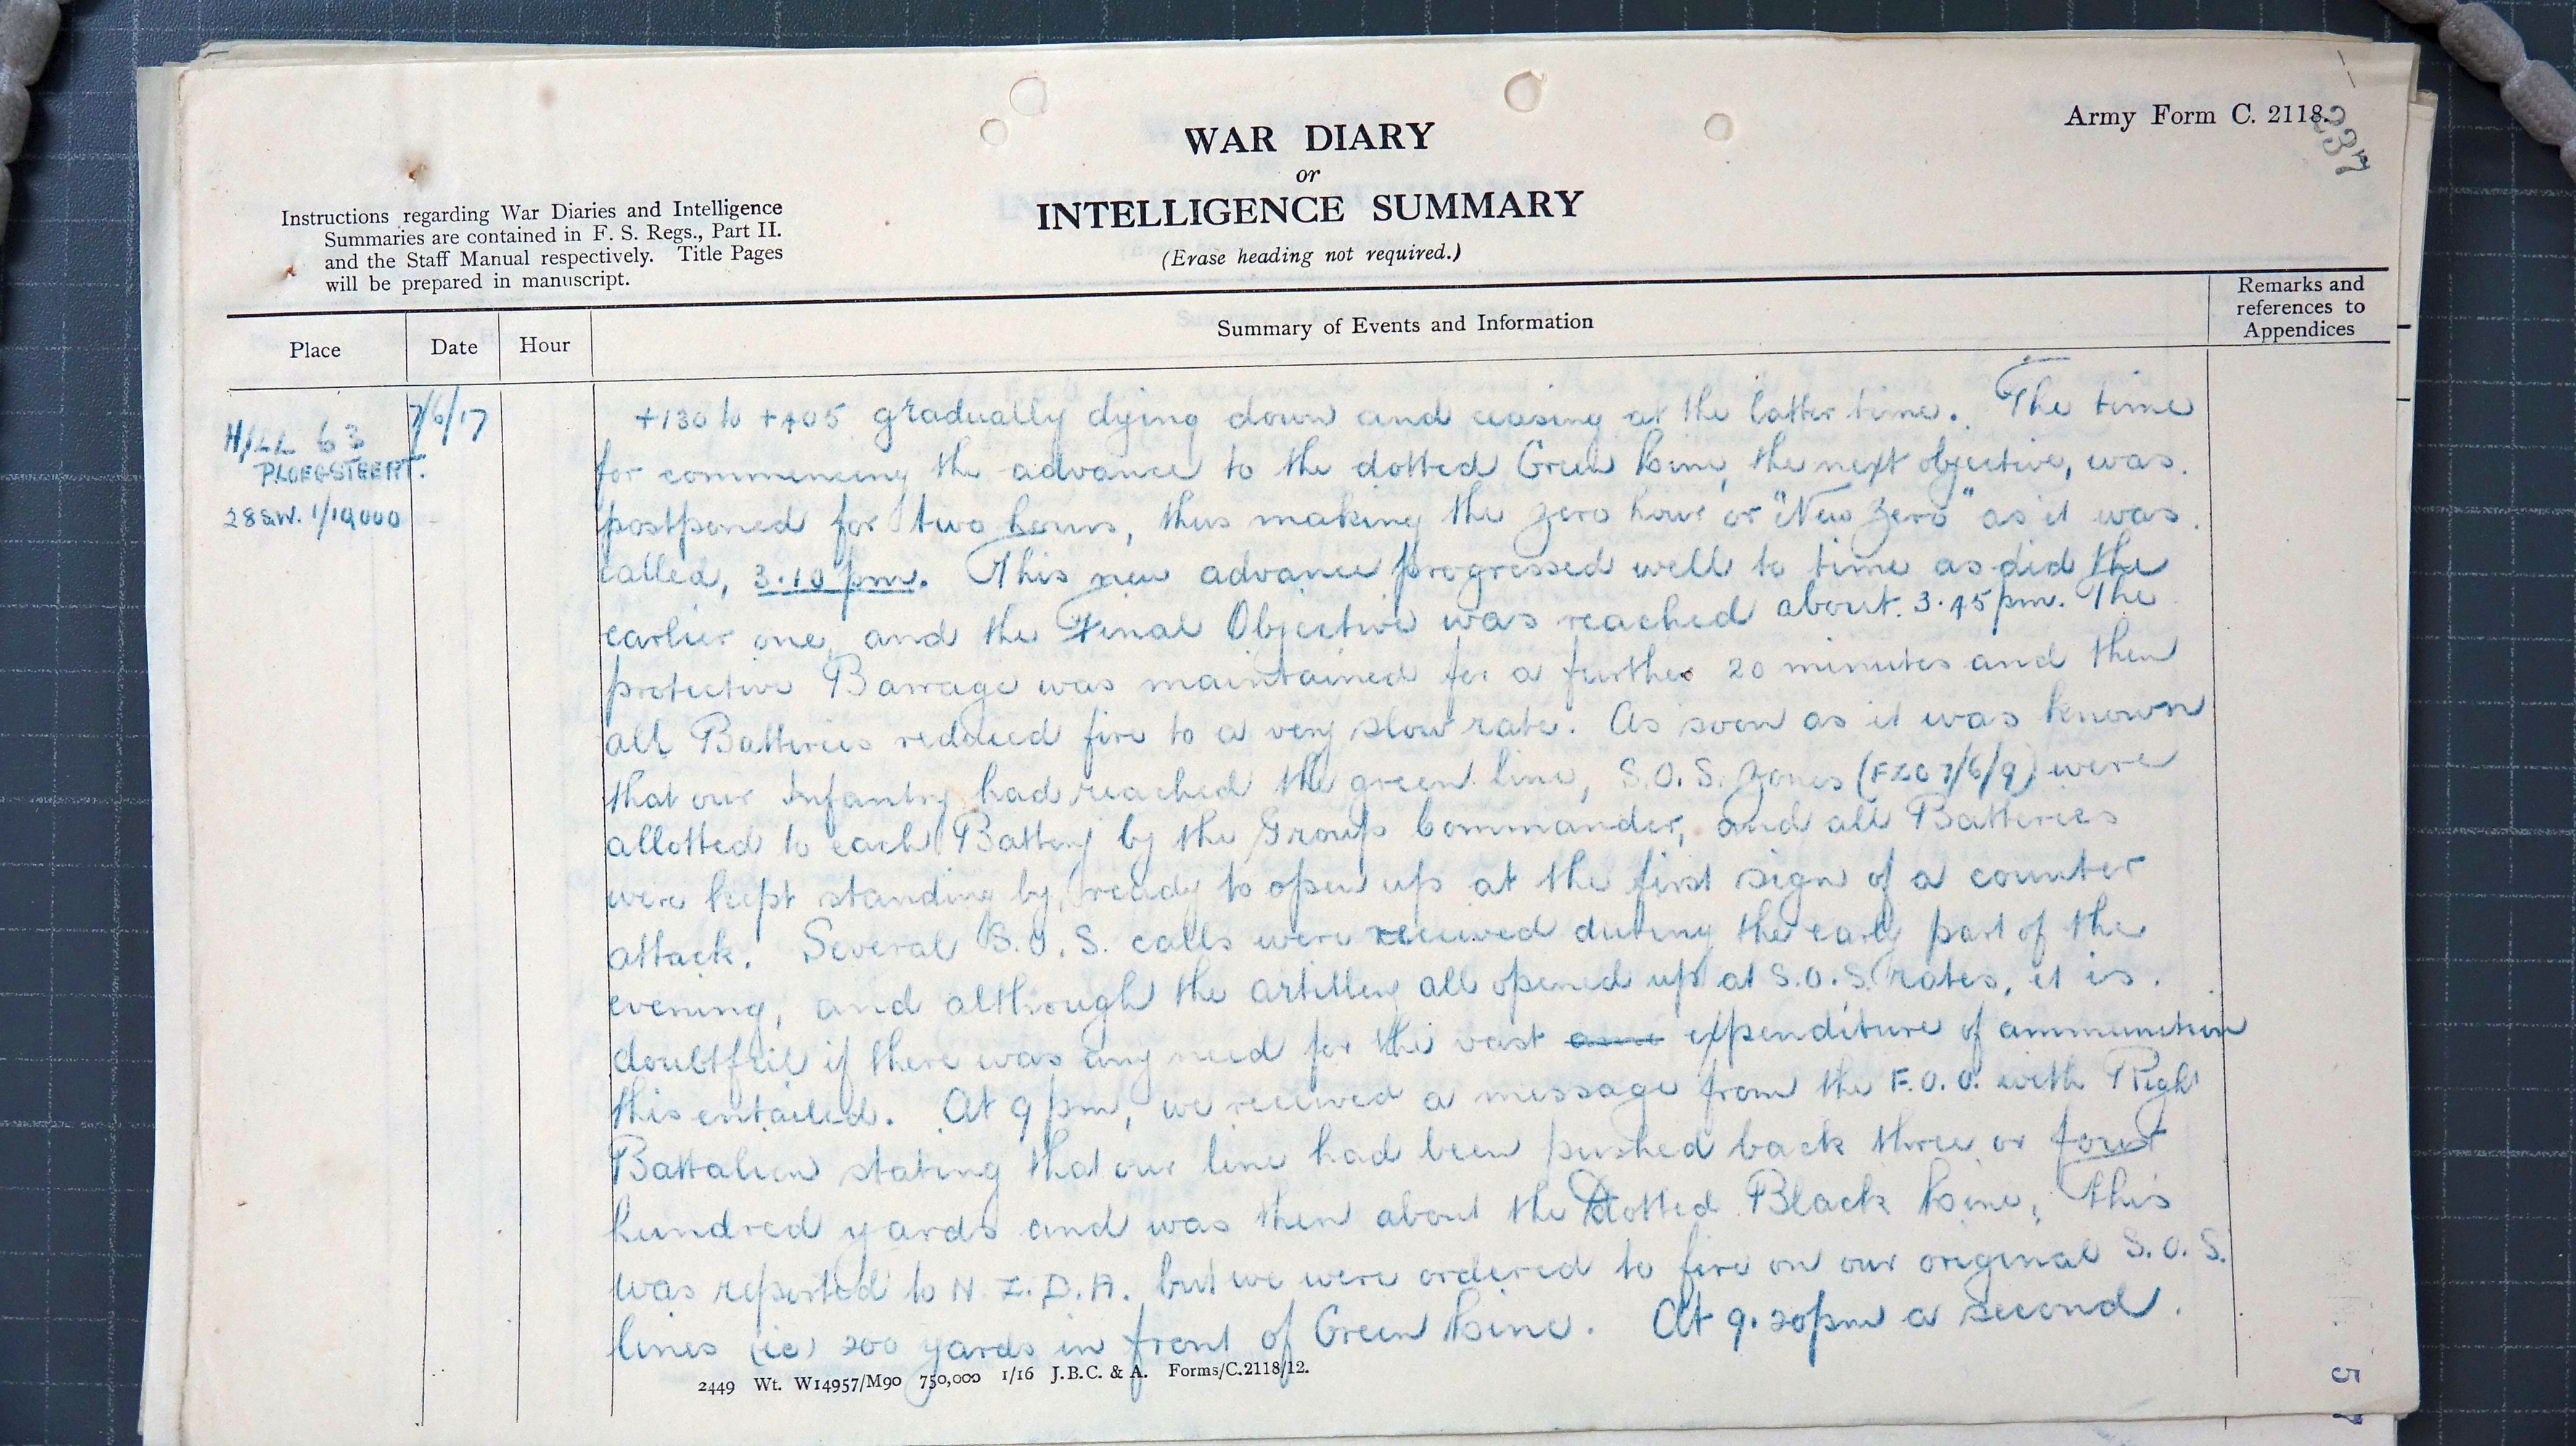 Army Form C. 2118.
237
WAR DIARY
or
INTELLIGENCE SUMMARY
(Erase heading not required.)
Instructions regarding War Diaries and Intelligence
Summaries are contained in F. S. Regs., Part II.
and the Staff Manual respectively. Title Pages
will be prepared in manuscript.
Place
Date
Hour
Summary of Events and Information
Remarks and
references to
Appendices
HILL 63
PLOEGSTEERT.
28 S.W. 1/10,000
7/6/17
+130 to +405 gradually dying down and ceasing at the latter time. The time
for commencing the advance to the dotted Green Line, the next objective, was
postponed for two hours, thus making the zero hour or "New Zero" as it was
called, 3.10 pm. This new advance progressed well to time as did the
earlier one, and the Final Objective was reached about 3.45 pm. The
protective Barrage was maintained for a further 20 minutes and then
all Batteries reduced fire to a very slow rate. As soon as it was known
that our Infantry had reached the green line, S.O.S. Zones (FZC 7/6/9) were
allotted to each Battery by the Group Commander, and all Batteries
were kept standing by, ready to open up at the first sign of a counter
attack. Several S.O.S. calls were received during the early part of the
evening, and although the artillery all opened up at S.O.S. rates, it is
doubtful if there was any need for the vast expenditure of ammunition
this entailed. At 9 pm, we received a message from the F.O.O. with Right
Battalion stating that our line had been pushed back three or four
hundred yards and was then about the Dotted Black Line, This
was reported to N.Z.D.A. but we were ordered to fire on our original S.O.S.
lines (ie) 200 yards in front of Green Line. At 9.20pm a second
2449 Wt. W14957/M90 750,000 1/16 J.B.C. & A. Forms/C.2118/12.